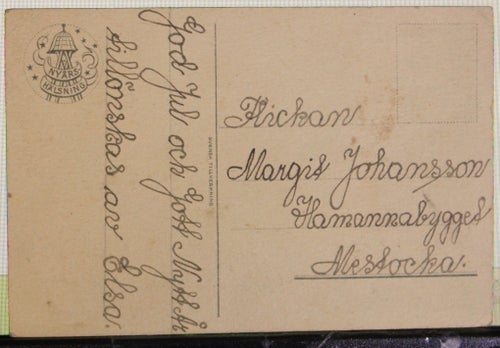 NYÅRS
HÄLSNING
God Jul och Gott Nytt År
tillönskas av Elsa.
SVENSK TILLVERKNING
Flickan
Margit Johansson
Hamannabygget
Mestocka.